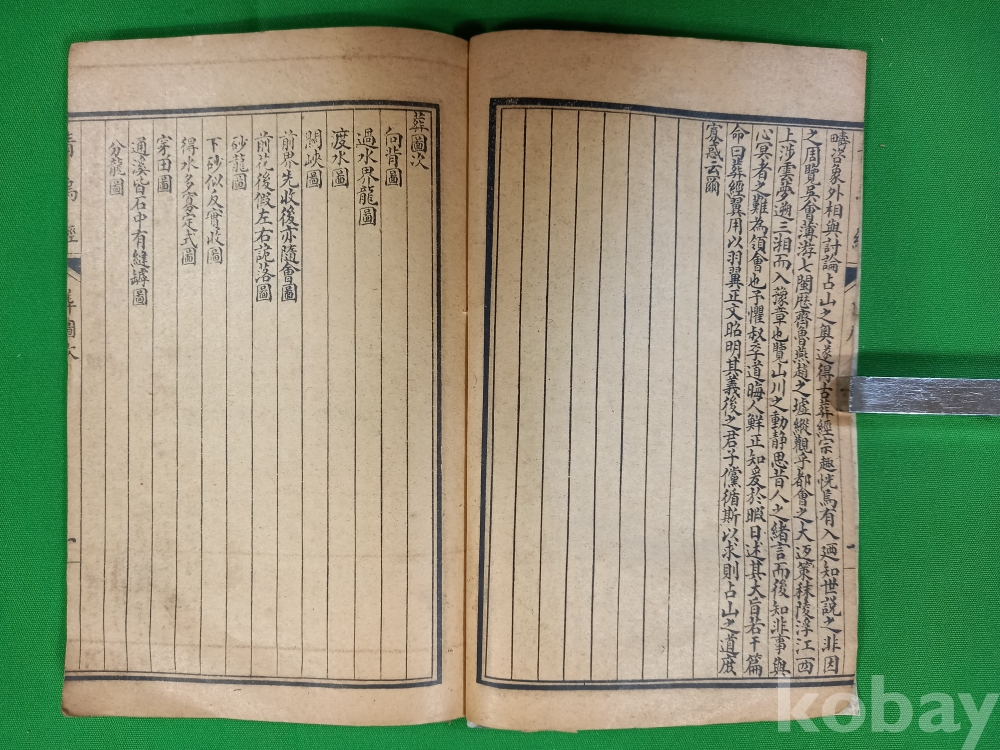 疇咨象外相與討論占山之奧遂得古葬經宗趣恍焉有入迺知世説之非因
之周覽吳會薄游七閩歴齊魯燕趙之墟縱觀乎都會之大迈策秣陵浮江西
上涉雲夢遡三湘而入豫章也覽山川之動靜思昔人之緒言而後知非事與
心冥者之難為領會也予懼叔季道晦人鮮正知爰於暇日述其大旨若干篇
命曰葬經翼用以羽翼正文昭明其義後之君子儻循斯以求則占山之道庶
寡惑云爾
葬圖次
向背圖
過水界龍圖
渡水圖
關峽圖
前界先收後亦隨會圖
前花後假左右詭落圖
砂龍圖
下砂似反實收圖
得水多寡定式圖
穿田圖
通溪皆石中有縫罅圖
分龍圖
青烏經
葬圖次
一
kobay